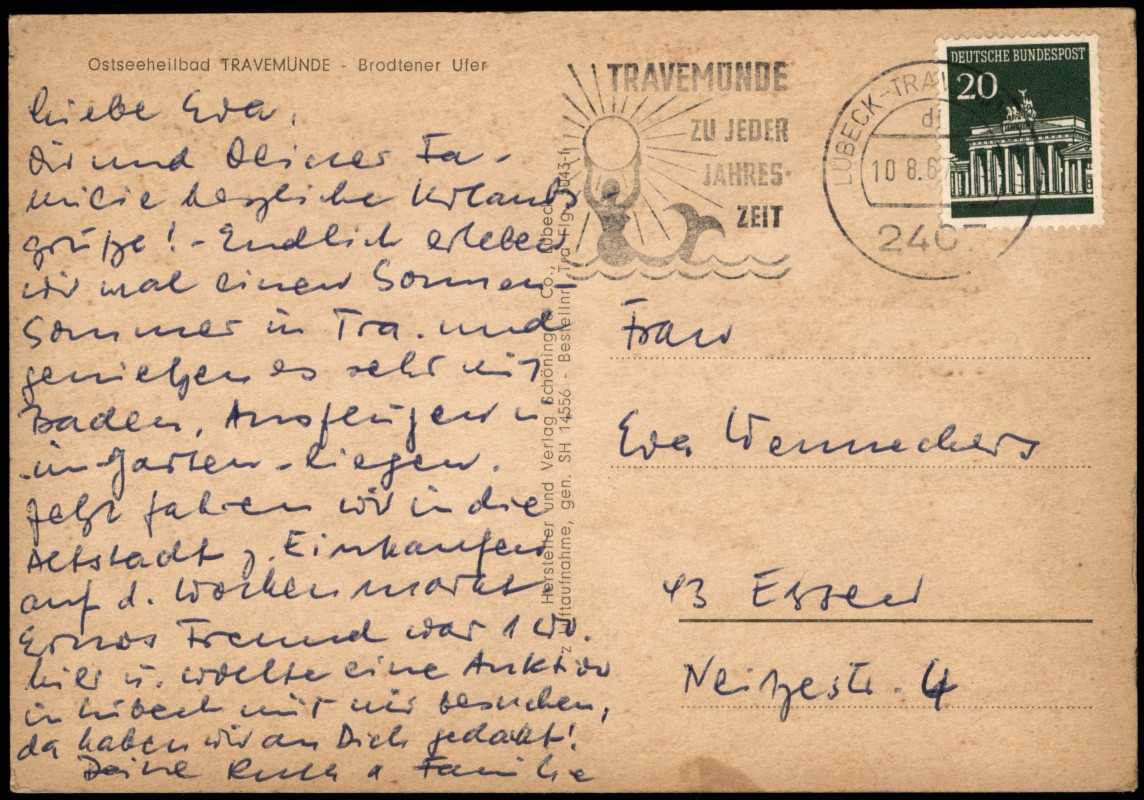 Ostseeheilbad TRAVEMÜNDE - Brodtener Ufer
Liebe Eva,
Dir und Deiner Fa-
milie herzliche Urlaubs
grüße! - Endlich erleben
wir mal einen Sonnen-
Sommer in Tra. und
genießen es sehr mit
Baden, Ausflügen u.
im Garten - liegen.
Jetzt fahren wir in die
Altstadt z. Einkaufen
auf d. Wochenmarkt.
Ernos Freund war 1 Wo.
hier u. wollte eine Auktion
in Lübeck mit mir besuchen,
da haben wir an Dich gedacht!
Deine Ruth u Familie
Hersteller und Verlag Schöning & Co., Lübeck
Luftaufnahme, gen. SH 14556 - Bestellnr. Tra Flg.
TRAVEMÜNDE
ZU JEDER
JAHRES-
ZEIT
LÜBECK-TRAVE
10 8.67
DEUTSCHE BUNDESPOST
20
Frau
Eva Wennekers
43 Essen
Neitzestr. 4